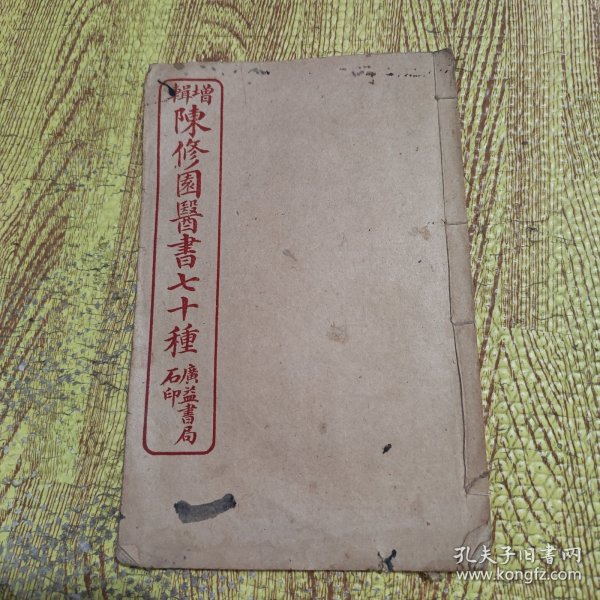 增輯
陳修園醫書七十種
廣益書局
石印
孔夫子旧書网
www.kongfz.com